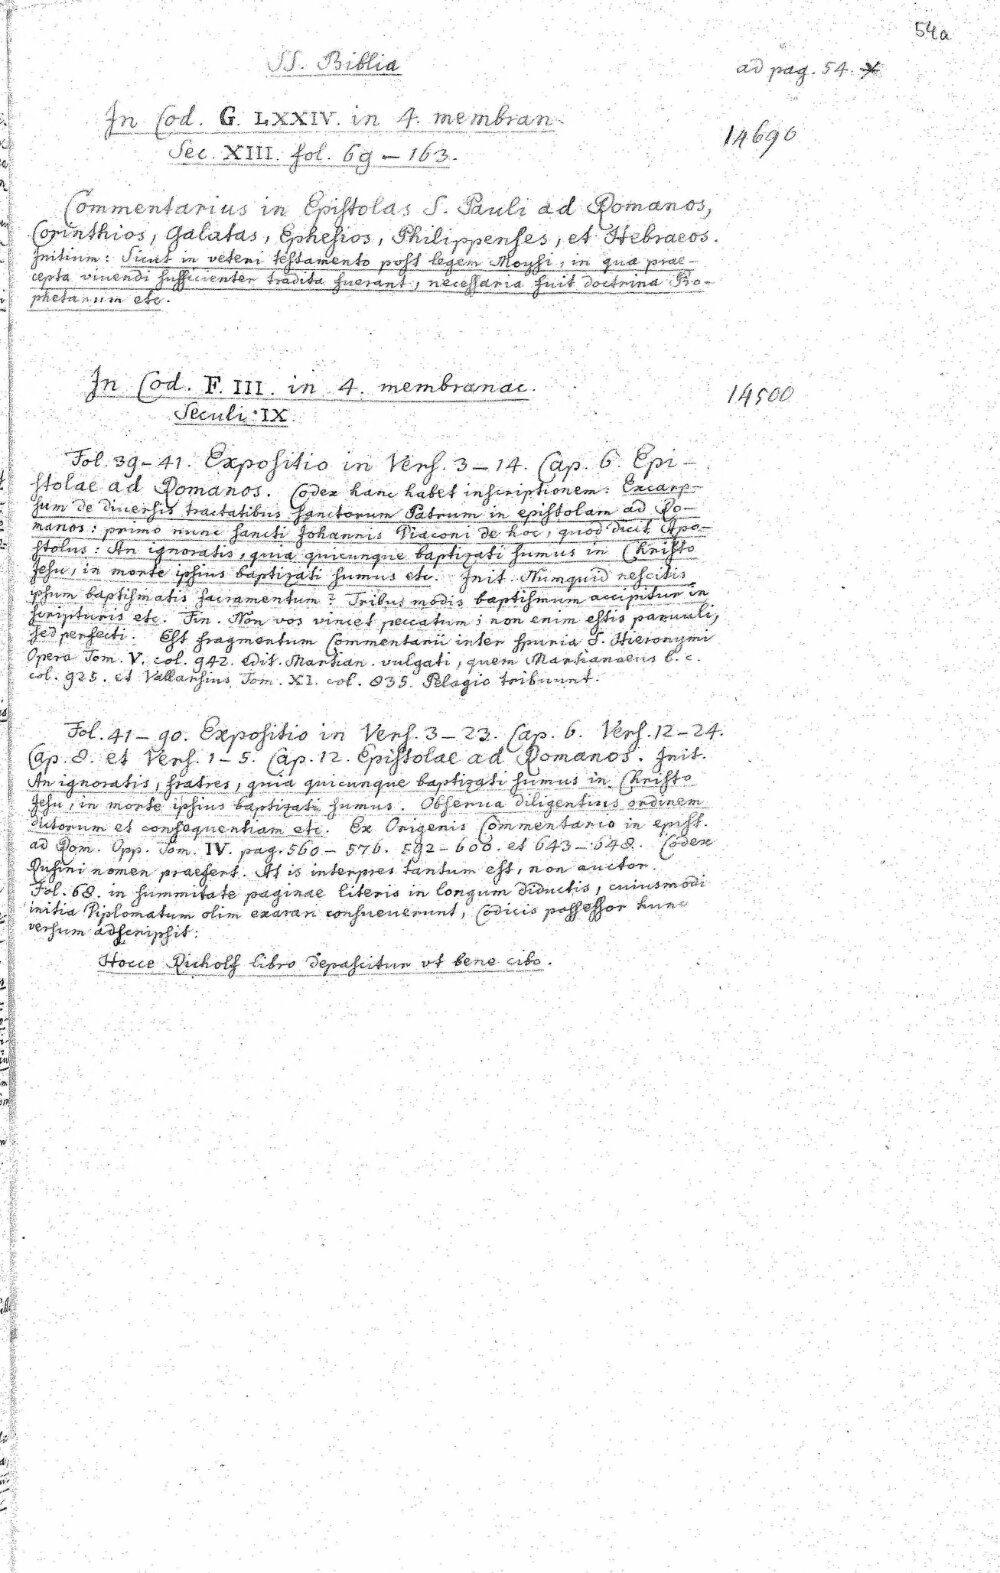 54a
SS. Biblia
ad pag. 54.
In Cod. G. LXXIV. in 4. membran.
14690
Sec. XIII. fol. 69 – 163.
Commentarius in Epistolas S. Pauli ad Romanos,
Corinthios, Galatas, Ephesios, Philippenses, et Hebraeos.
Initium: Sicut in veteri testamento post legem Moysi, in qua prae-
cepta vivendi sufficienter tradita fuerant, necessaria fuit doctrina Pro-
phetarum etc.
In Cod. F. III. in 4. membranac.
14500
Seculi IX.
Fol. 39 – 41. Expositio in Vers. 3 – 14. Cap. 6. Epi-
stolae ad Romanos. Codex hanc habet inscriptionem: Excarp-
sum de diuersis tractatibus sanctorum Patrum in epistolam ad Ro-
manos: primo nunc sancti Johannis Diaconi de hoc, quod dicit Apo-
stolus: An ignoratis, quia quicunque baptizati sumus in Christo
Jesu, in morte ipsius baptizati sumus etc. Init. Numquid nescitis
ipsum baptismatis sacramentum? Tribus modis baptismum accipitur in
scripturis etc. Fin. Non vos vincet peccatum; non enim estis paruuli,
sed perfecti. Est fragmentum Commentarii inter spuria S. Hieronymi
Opera Tom. V. col. 942. edit. Martian. vulgati, quem Martianaeus l. c.
col. 925. et Vallarsius Tom. XI. col. 835. Pelagio tribuunt.
Fol. 41 – 90. Expositio in Vers. 3 – 23. Cap. 6. Vers. 12 – 24.
Cap. 8. et Vers. 1 – 5. Cap. 12. Epistolae ad Romanos. Init.
An ignoratis, fratres, quia quicunque baptizati sumus in Christo
Jesu, in morte ipsius baptizati sumus. Obserua diligentius ordinem
dictorum et consequentiam etc. Ex Origenis Commentario in epist.
ad Rom. Opp. Tom. IV. pag. 560 – 576. 592 – 608. et 643 – 648. Codex
Rufini nomen praefert. At is interpres tantum est, non auctor.
Fol. 68. in summitate paginae literis in longum diductis, cuiusmodi
initia Diplomatum olim exarari consueuerunt, Codicis possessor hunc
versum adscripsit:
Hocce Richolf libro depascitur ut bene cibo.